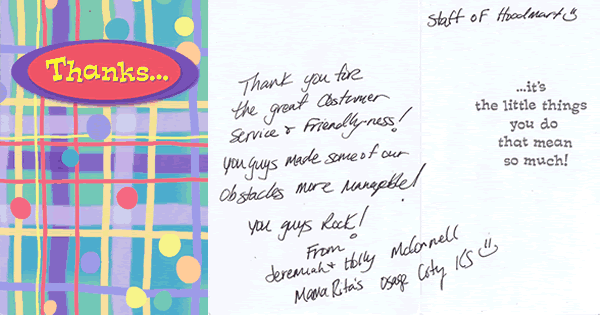 Thanks...
Thank you fore
the great Costumer
Service & Friendly-ness!
You guys made some of our
Obstacles more managable!
You guys Rock!
From
Jeremiah & Holly McConnell
Mama Rita's Osage City KS
Staff of Hoodmart
...it's
the little things
you do
that mean
so much!